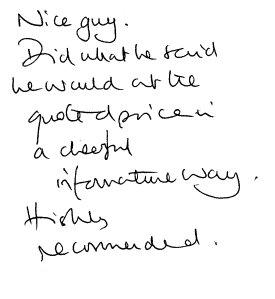 Nice guy.
Did what he said
he would at the
quoted price in
a cheerful
informative way.
Highly
recommended.